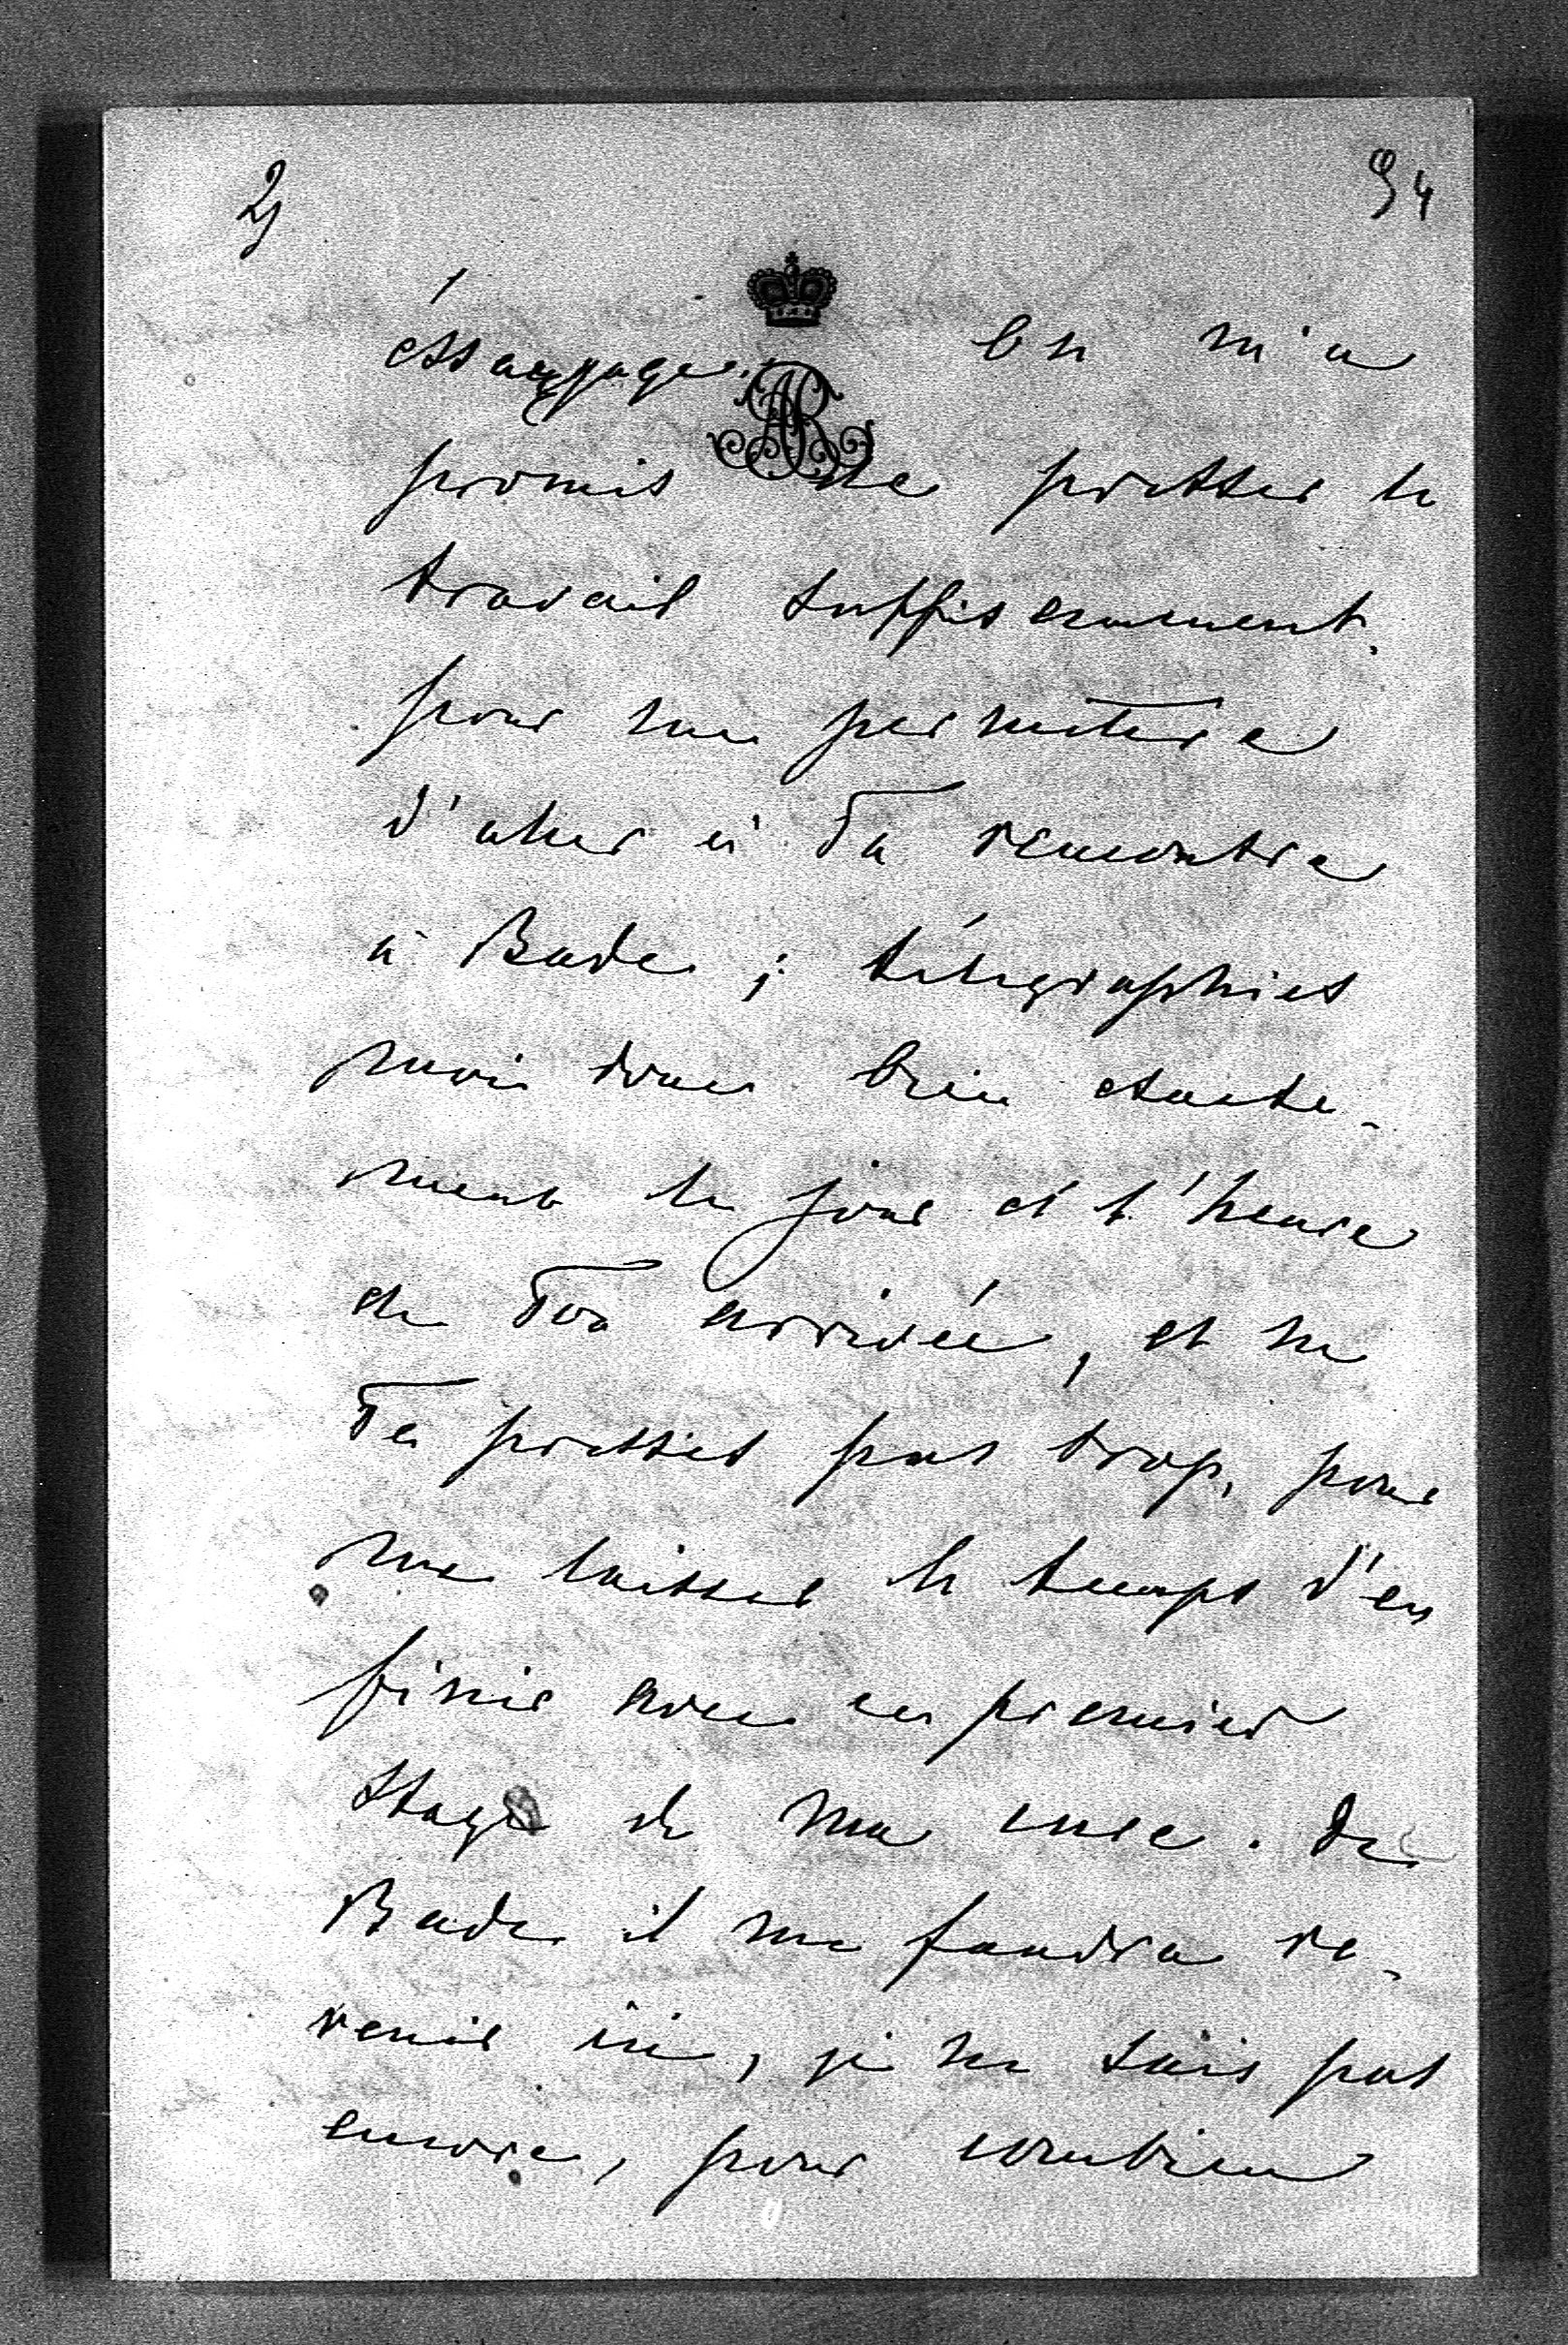 2) 94
On m'a
promis de presser le
travail suffisemment
pour me permettre
d'aller à Ta rencontre
à Bade ; télégraphies
moi donc bien exacte-
ment le jour et l'heure
de Ton arrivée, et ne
Te presses pas trop, pour
me laisser le temps d'en
finir avec ce premier
stage de ma cure. De
Bade il me faudra re-
venir ici, je ne sais pas
encore, pour combien